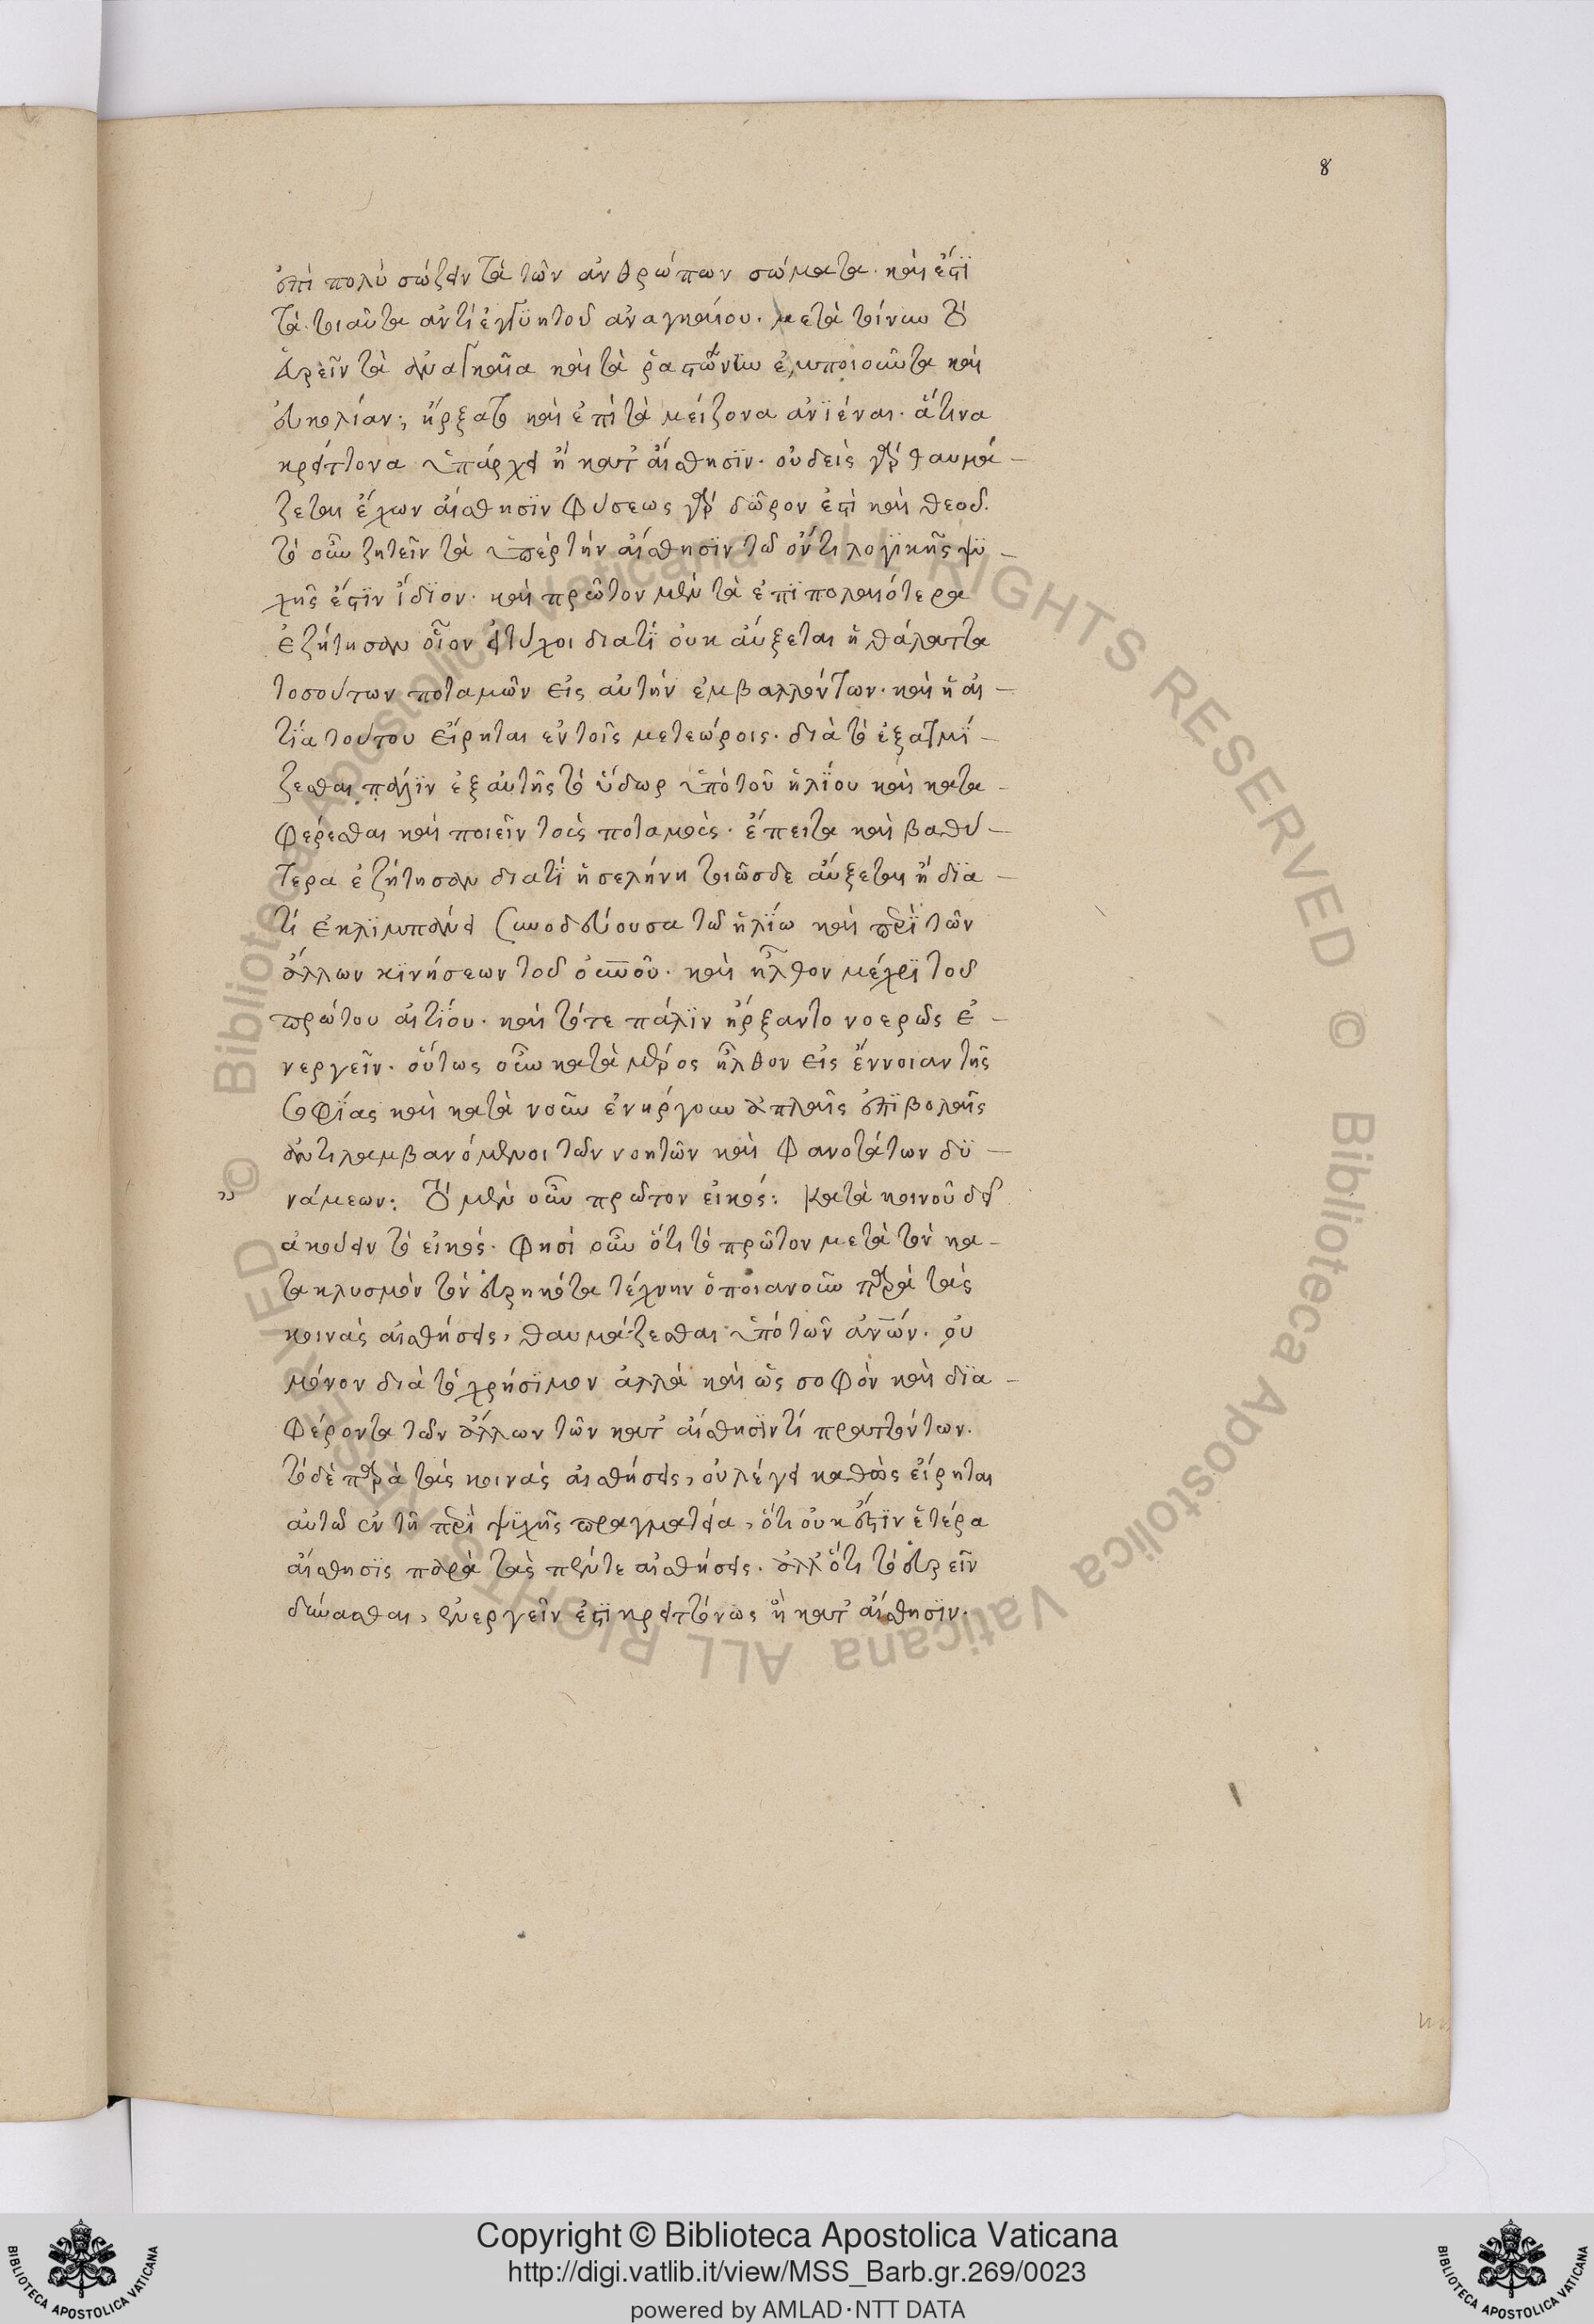 8
ἐπὶ πολὺ σώζειν τὰ τῶν ἀνθρώπων σώματα. καὶ ἐστὶ
τὰ τοιαῦτα ἀντὶ ἐγγὺη τοῦ ἀναγκαίου. μετὰ τοίνυν τὸ
εὑρεῖν τὰ ἀναγκαῖα καὶ τὰ ῥαστώνην ἐμποιοῦντα καὶ
εὐκολίαν; ἤρξατο καὶ ἐπὶ τὰ μείζονα ἀνϊέναι. ἅτινα
κρείττονα ὑπάρχει ἢ κατ' αἴσθησϊν. οὐδεὶς γὰρ θαυμά –
ζεται ἔχων αἴσθησϊν φύσεως γὰρ δῶρον ἐστὶ καὶ θεοῦ.
τὸ οὖν ζητεῖν τὰ ὑπὲρ τὴν αἴσθησϊν τῶ ὄντι λογϊκῆς ψυ –
χῆς ἐστϊν ἴδϊον. καὶ πρῶτον μὲν τὰ ἐπϊπολαιότερα
ἐζήτησαν οἷον εἰ τύχοι διατί οὐκ αὔξεται ἡ θάλαττα
τοσούτων ποταμῶν εἰς αὐτὴν ἐμβαλλόντων. καὶ ἡ αἰ –
τία τούτου εἴρηται ἐν τοῖς μετεώροις. διὰ τὸ ἐξατμί –
ζεσθαι πάλϊν ἐξ αὐτῆς τὸ ὕδωρ ὑπὸ τοῦ ἡλίου καὶ κατα –
φέρεσθαι καὶ ποιεῖν τοὺς ποταμοὺς. ἔπειτα καὶ βαθύ –
τερα ἐζήτησαν διατί ἡ σελήνη τοιῶσδε αὔξεται ἢ δϊα –
τί ἐκλϊμπάνει συνοδεύουσα τῶ ἡλίω καὶ περὶ τῶν
ἄλλων κϊνήσεων τοῦ οὐνοῦ. καὶ ἦλθον μέχρι τοῦ
πρώτου αἰτίου. καὶ τότε πάλϊν ἤρξαντο νοερῶς ἐ –
νεργεῖν. οὕτως οὖν κατὰ μέρος ἦλθον εἰς ἔννοιαν τῆς
σοφίας καὶ κατὰ νοῦν ἐνήργουν ἁπλαῖς ἐπϊβολαῖς
ἀντιλαμβανόμενοι τῶν νοητῶν καὶ φανοτάτων δυ –
" νάμεων: Τὸ μὲν οὖν πρῶτον εἰκός: Κατὰ κοινοῦ δεῖ
ἀκούειν τὸ εἰκός. φησὶ οὖν ὅτι τὸ πρῶτον μετὰ τὸν κα –
τακλυσμὸν τὸν εὑρηκότα τέχνην ὁποιανοῦν παρὰ τὰς
κοινὰς αἰσθήσεις, θαυμάζεσθαι ὑπὸ τῶν ἀνῶν. οὐ
μόνον διὰ τὸ χρήσϊμον ἀλλὰ καὶ ὡς σοφὸν καὶ δϊα –
φέροντα τῶν ἄλλων τῶν κατ' αἴσθησϊν τί πραττόντων.
τὸ δὲ παρὰ τὰς κοινὰς αἰσθήσεις, οὐ λέγει καθὼς εἴρηται
αὐτῶ ἐν τῆ περὶ ψϋχῆς πραγματεία, ὅτι οὐκ ἔστϊν ἑτέρα
αἴσθησϊς παρὰ τὰς πέντε αἰσθήσεις. ἀλλ' ὅτι τὸ εὑρεῖν
δύνασθαι, ἐνεργεῖν ἐστϊ κρειττόνως ἢ κατ' αἴσθησϊν.
Copyright © Biblioteca Apostolica Vaticana
http://digi.vatlib.it/view/MSS_Barb.gr.269/0023
powered by AMLAD·NTT DATA